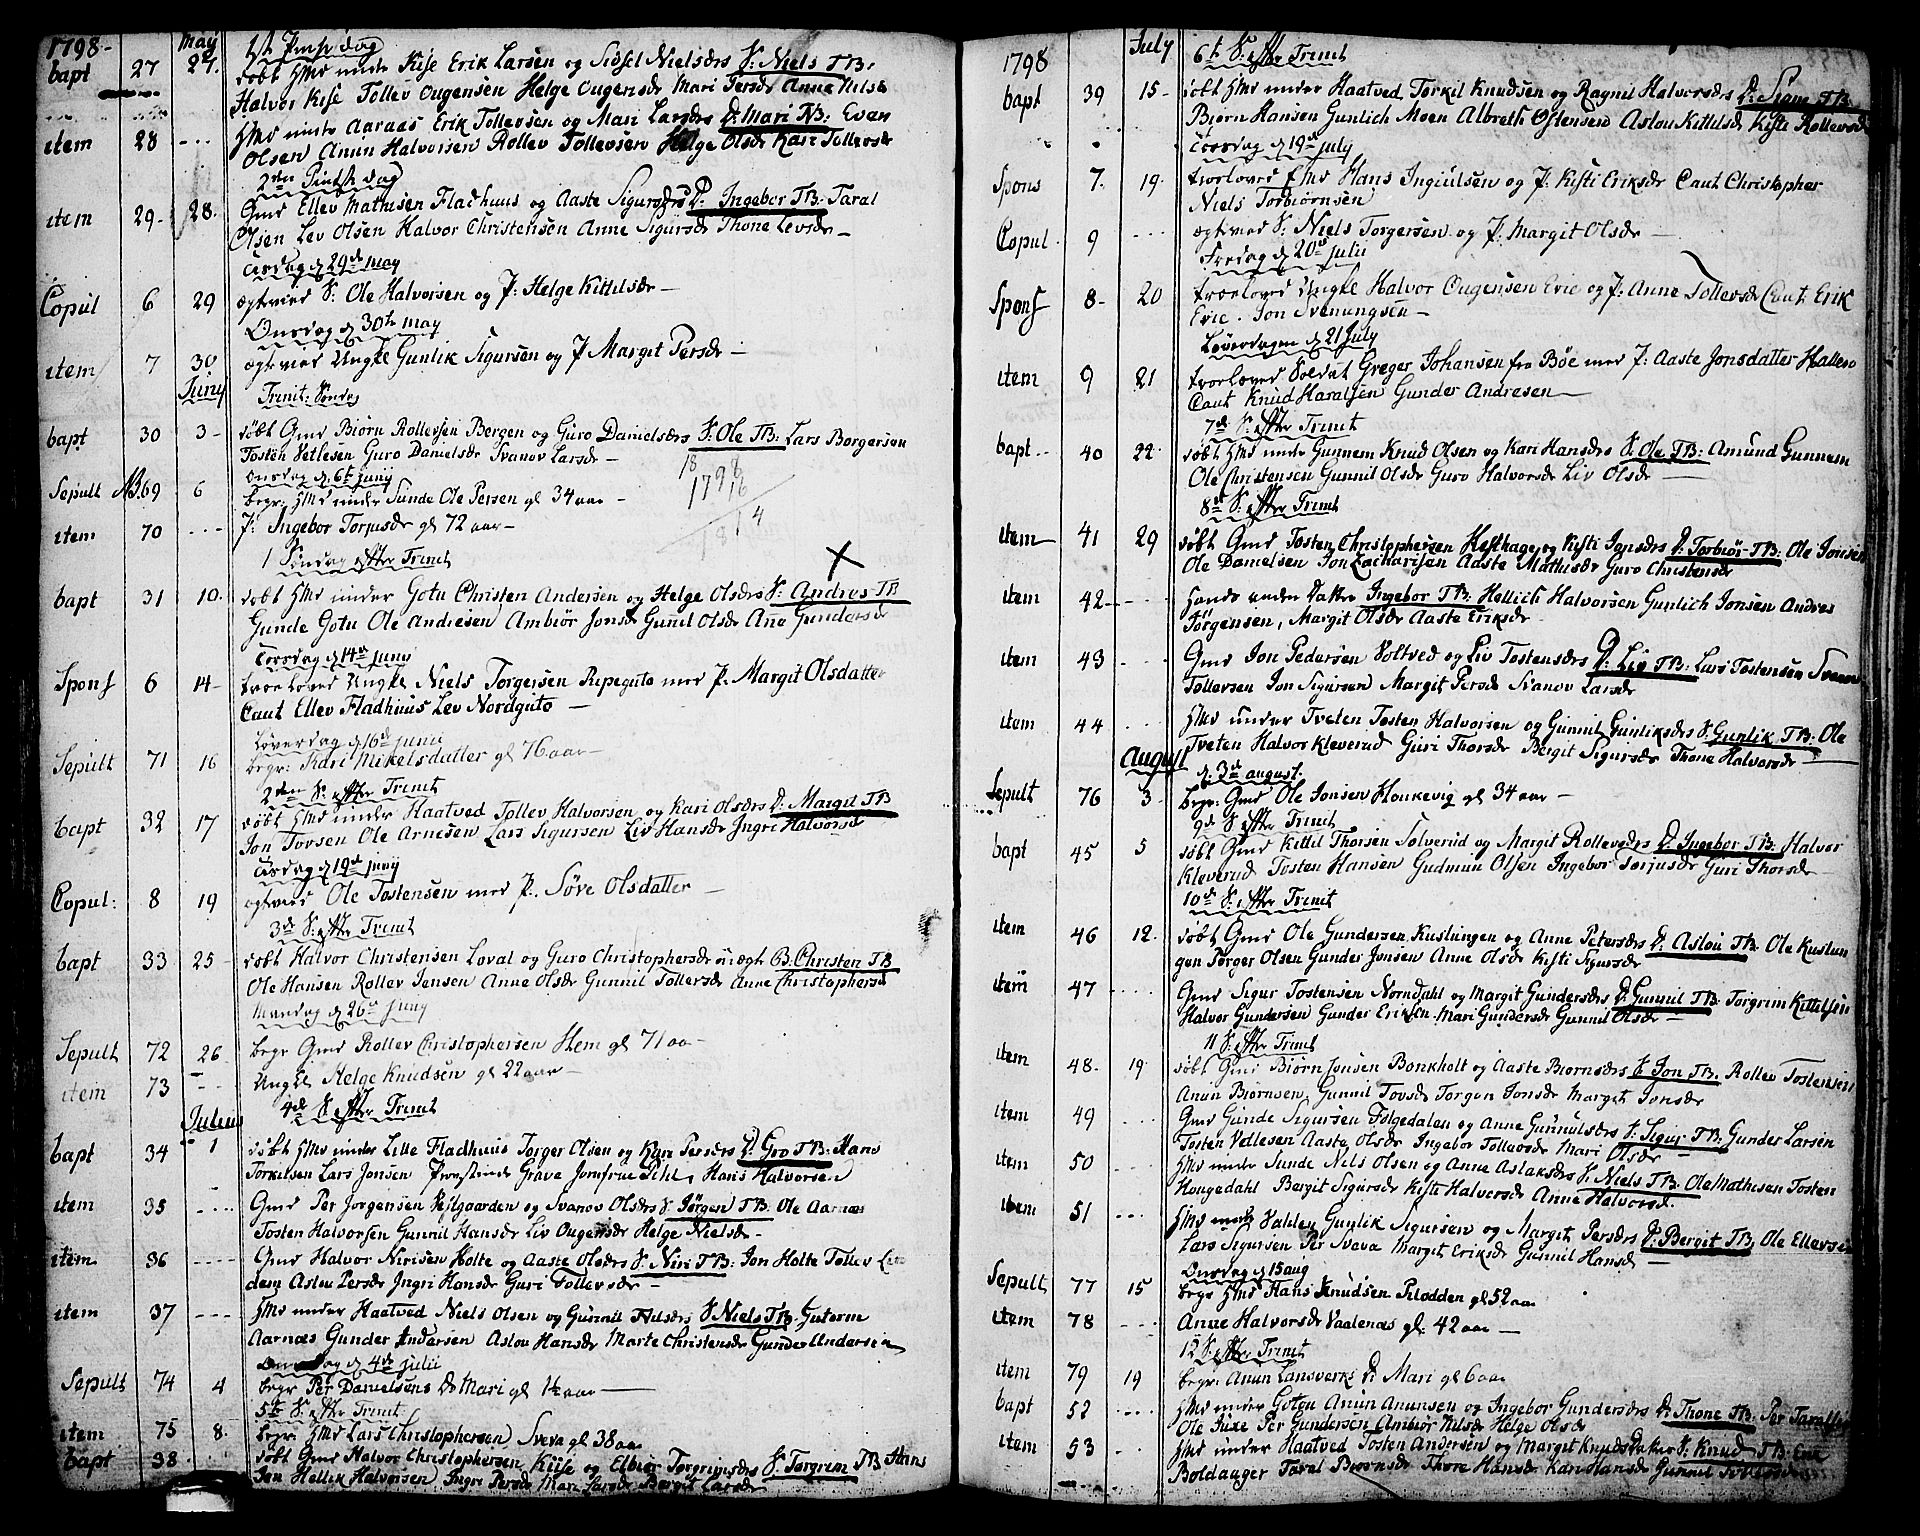 1798- May 1st Pintsedag
bapt 27 27. døbt Hmd under Kise Erik Larsen og Sidsel Nielsdrs S: Niels TB:
Halvor Kise Tollev Ougensen Helge Ougensdr Mari Persdr Anne Nilsd
item 28 Hmd under Aaraas Erik Tollevsen og Mari Larsdrs D: Mari TB: Even
Olsen Anun Halvorsen Rollev Tollevsen Helge Olsdr Kari Tollevsdr
2den Pintsedag
item 29- 28. Gmd Ellev Mathisen Fladhuus og Aaste Sigursdrs D: Ingebor TB: Taral
Olsen Lev Olsen Halvor Christensen Anne Sigursdr Thone Levsdr-
Tirsdag d 29de may
Copul 6 29 ægtevied S: Ole Halvorsen og P: Helge Kittilsdr-
Onsdag d 30th may
item 7 30 ægtevied Ungke Gunlik Sigursen og P Margit Persdr-
Juny Trinit: Søndag
bapt 30 3- døbt Gmd Biørn Rollevsen Bergen og Guro Danielsdrs S: Ole TB: Lars Borgersen
Tosten Vetlesen Guro Danielsdr Svanov Larsdr-
Onsdag d 6t junij
Sepult No 69 6 begr: Hmd under Sunde Ole Persen gl 34 aar-
item 70 P: Ingebor Torjusdr gl 72 aar-
18
1798
16
1814
1 Søndag efter Trinit
bapt 31 10. døbt Hmd under Gotu Christen Andersen og Helge Olsdrs S: Andres TB
Gunde Gotu Ole Andresen Ambiør Jonsdr Gunil Olsdr Ane Gundersdr
Torsdag d 14de juny
Spons 6 14- troeloved Ungke Niels Torgersen Ripeguto med P. Margit Olsdatter
Caut Ellev Fladhuus Lev Nordguto-
Løverdag d 16de junii
Sepult 71 16 begr: Kari Mikelsdatter gl 76 aar-
2den S: efter Trinit
bapt 32 17 døbt Hmd under Haatved Tollev Halvorsen og Kari Olsdrs D: Margit TB
Jon Tovsen Ole Arnesen Lars Sigursen Liv Hansdr Ingri Halvorsd
Tirsdag d 19de junij
Copul: 8 19 ægtevied Ole Tostensen med P. Søve Olsdatter-
3de S: efter Trinit
bapt 33 25- døbt Halvor Christensen Loval og Guro Christophersdr uægt B. Christen TB
Ole Hansen Rollev Jensen Anne Olsdr Gunnil Tollevsdr Anne Christophersd
Mandag d 26de Juny
Sepult 72 26 begr Gmd Rollev Christophersen Hem gl 71 aa-
item 73 Ungkl Helge Knudsen gl 22 aar-
Julius 4de S: efter Trinit
bapt 34 1 døbt Hmd under Lille Fladhuus Torger Olsen og Kari Persdrs D: Gro TB: Hans
Torkilsen Lars Jonsen Præstinde Grave Jomfrue Pihl, Hans Halvorsen
item 35 Gmd Per Jorgensen Vestgaarden og Svanov Olsdrs S: Jørgen TB: Ole Aarnæs
Tosten Halvorsen Gunnil Hansdr Liv Ougensdr Helge Nielsdr-
item 36 Gmd Halvor Nirisen Holte og Aaste Olsdrs S: Niri TB: Jon Holte Tollev Lin
dem Aslou Persdr Ingri Hansdr Guri Tollevsdr-
item 37 Hmd under Haatved Niels Olsen og Gunnil Nilsdrs S: Niels TB: Gutorm
Aarnæs Gunder Andersen Aslou Hansdr Marte Christensdr Gunder Andersen
Onsdag d 4de julii
Sepult 74 4 begr Per Danielsens D: Mari gl 1½ aar-
5te S: efter Trinit
item 75 8. begr: Hmd Lars Christophersen Sveva gl 38 aar
bapt 38 døbt Gmd Halvor Christophersen Kiise og Elbiør Torgrimsdrs S: Torgrim TB Hans
Jon Hellik Halvorsen, Inger Persdr Mari Larsdr Bergit Larsdr
1798 July 6t S: efter Trinit
bapt 39 15- døbt Hmd under Haatved Torkil Knudsen og Ragnil Halvorsdrs D: Signe TB:
Biørn Hansen Gunlich Moen Albreth Ostensen Aslou Kittilsdr Kisti Rollevsdr
Torsdag d 19de july
Spons 7. 19. troeloved Hmd Hans Ingiulsen og P: Kisti Eriksdr Caut Christopher
Niels Torbiørnsen
Copul 9 ægtvied S: Niels Torgersen og P: Margit Olsdr-
Fredag d 20de julii
Spons 8- 20 troeloved Ungke Halvor Ougensen Evie og P: Anne Tollevsdr Caut Erik
Evie. Jon Svenungsen-
Løverdagen d 21 July
item 9 21 troeloved Soldat Greger Johansen fra Bøe med P: Aaste Jonsdatter Hallevo
Caut Knud Haralsen Gunder Andresen-
7de S: efter Trinit
bapt 40 22 døbt Hmd under Gunnem Knud Olsen og Kari Hansdrs S. Ole TB: Amund Gunnem
Ole Christensen Gunnil Olsdr Guro Halvorsdr Liv Olsdr-
8de S: efter Trinit
item 41 29 døbt Gmd Tosten Christophersen Hesthage og Kisti Jonsdrs D: Torbiør TB: Ole Jonsen
Ole Danielsen Jon Zachariasen Aaste Mathisdr Guro Christensdr
item 42 Hands anden Datter Ingebor TB: Hellich Halvorsen Gunlich Jonsen Andres
Jørgensen, Margit Olsdr Aaste Eriksdr
item 43 Gmd Jon Pedersen Voltved og Liv Tostensdrs D: Liv TB: Lars Tostensen Svanov
Tollevsen Jon Sigursen Margit Persdr Svanov Larsdr
item 44 Hmd under Tveten Tosten Halvorsen og Gunnil Gunliksdrs S. Gunlik TB: Ole
Tveten Halvor Kleverud Guri Thorsdr Bergit Sigursdr Thone Halvorsdr
August d. 3de august.
Sepult 76 3 begr. Gmd Ole Jonsen Houkevig gl 34 aar-
9de S efter Trinit
bapt 45 5 døbt Gmd Kittil Thorsen Solverud og Margit Rollevsdrs D: Ingebor TB: Halvor
Kleverud Tosten Hansen Gudmun Olsen Ingebor Torjusdr Guri Thorsdr-
10de S: efter Trinit
item 46 12. døbt Gmd Ole Gundersen Kuslungen og Anne Petersdrs D: Aslou TB. Ole Kuslun
gen Torger Olsen Gunder Jonsen Anne Olsdr Kisti Sigursdr
item 47 Gmd Sigur Tostensen Norndahl og Margit Gundersdrs D: Gunnil TB: Torgrim Kittilsen
Halvor Gundersen Gunder Eriksen Mari Gundersdr Gunnil Olsdr-
11 S: efter Trinit
item 48- 19. døbt Gmd Biørn Jonsen Bonkholt og Aaste Biørnsdrs S: Jon TB. Rollev Tostensen
Anun Biørnsen, Gunnil Tovsdr Torgon Jonsdr Margit Jonsdr
item 49 Gmd Gunde Sigursen Folgedalen og Anne Gunnulsdrs S: Sigur TB: Gunder Larsen
Tosten Vetlesen Aaste Olsdr Ingebor Tollevsdr Mari Olsdr-
item 50 Hmd under Sunde Nels Olsen og Anne Aslaksdrs S: Niels TB: Ole Mathisen Tosten
Hougedahl Bergit Sigursdr Kisti Halvorsdr Anne Halvorsd.
item 51 Hmd under Vahlen Gunlik Sigursen og Margit Persdrs D: Bergit TB. Ole Ellevsen
Lars Sigursen Per Sveva Margit Eriksdr Gunnil Hansd-
Onsdag d 15 aug
Sepult 77 15 begr Hmd Hans Knudsen Plodden gl 52 aar
item 78 Anne Halvorsdr Vaalenæs gl: 42 aar-
12 S: efter Trinit
item 79 19 begr: Anun Lansverks D: Mari gl 6 aar
bapt 52 Hmd under Goten Anun Anunsen og Ingebor Gundersdrs D: Thone TB. Per Taralsen
Ole Juxe Per Gundersen Ambiør Nilsdr Helge Olsdr
item 53 Hmd under Haatved Tosten Andersen og Margit Knudsdatter S: Knud TB
Boldauger Taral Biørnsdr Thore Hansdr Kari Hansdr Gunnil